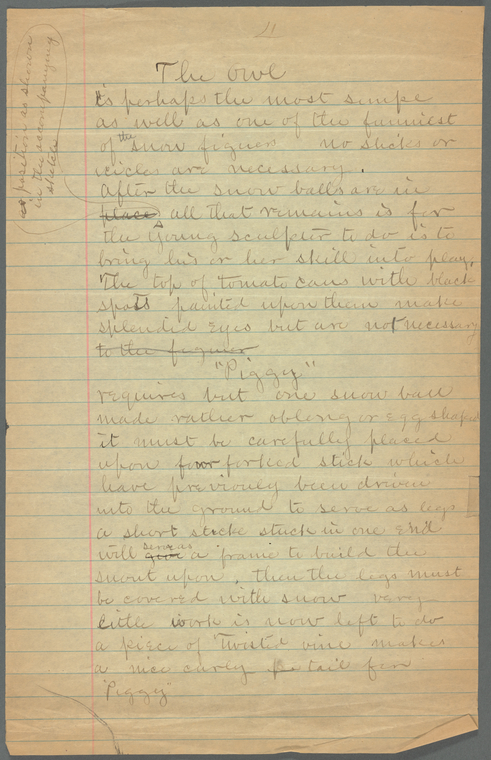 11
The Owl
is perhaps the most simpe
as well as one of the funniest
of the snow figures no sticks or
icicles are necessary.
After the snow balls are in
place all that remains is for
the young sculpter to do is to
bring his or her skill into play.
The top of tomato cans with black
spots painted upon them make
splendid eyes but are not necessary
to the figures
"Piggy"
requires but one snow ball
made rather oblong or egg shaped
it must be carefully placed
upon four forked stick which
have previously been driven
into the ground to serve as legs
a short sticke stuck in one end
will give serve as a frame to build the
snout upon. then the legs must
be covered with snow very
little work is now left to do
a piece of twisted vine makes
a nice curly tail for
"Piggy"
position as shown
in the accompanying
sketch